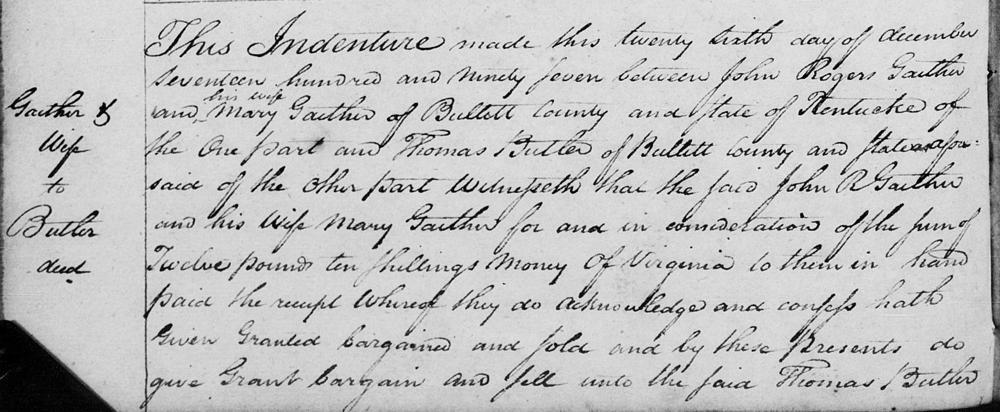 Gaither &
Wife
to
Butler
deed
This Indenture made this twenty sixth day of december
seventeen hundred and Ninety seven between John Rogers Gaither
his wife
and Mary Gaither of Bullett County and State of Kentucke of
the One part and Thomas Butler of Bullett County and State afore
said of the Other part Witnesseth that the said John R Gaither
and his Wife Mary Gaither for and in consideration of the sum of
Twelve pounds ten shillings Money Of Virginia to them in hand
paid the receipt Whereof they do acknowledge and confess hath
Given Granted bargained and sold and by these Presents do
give Grant bargain and sell unto the said Thomas Butler